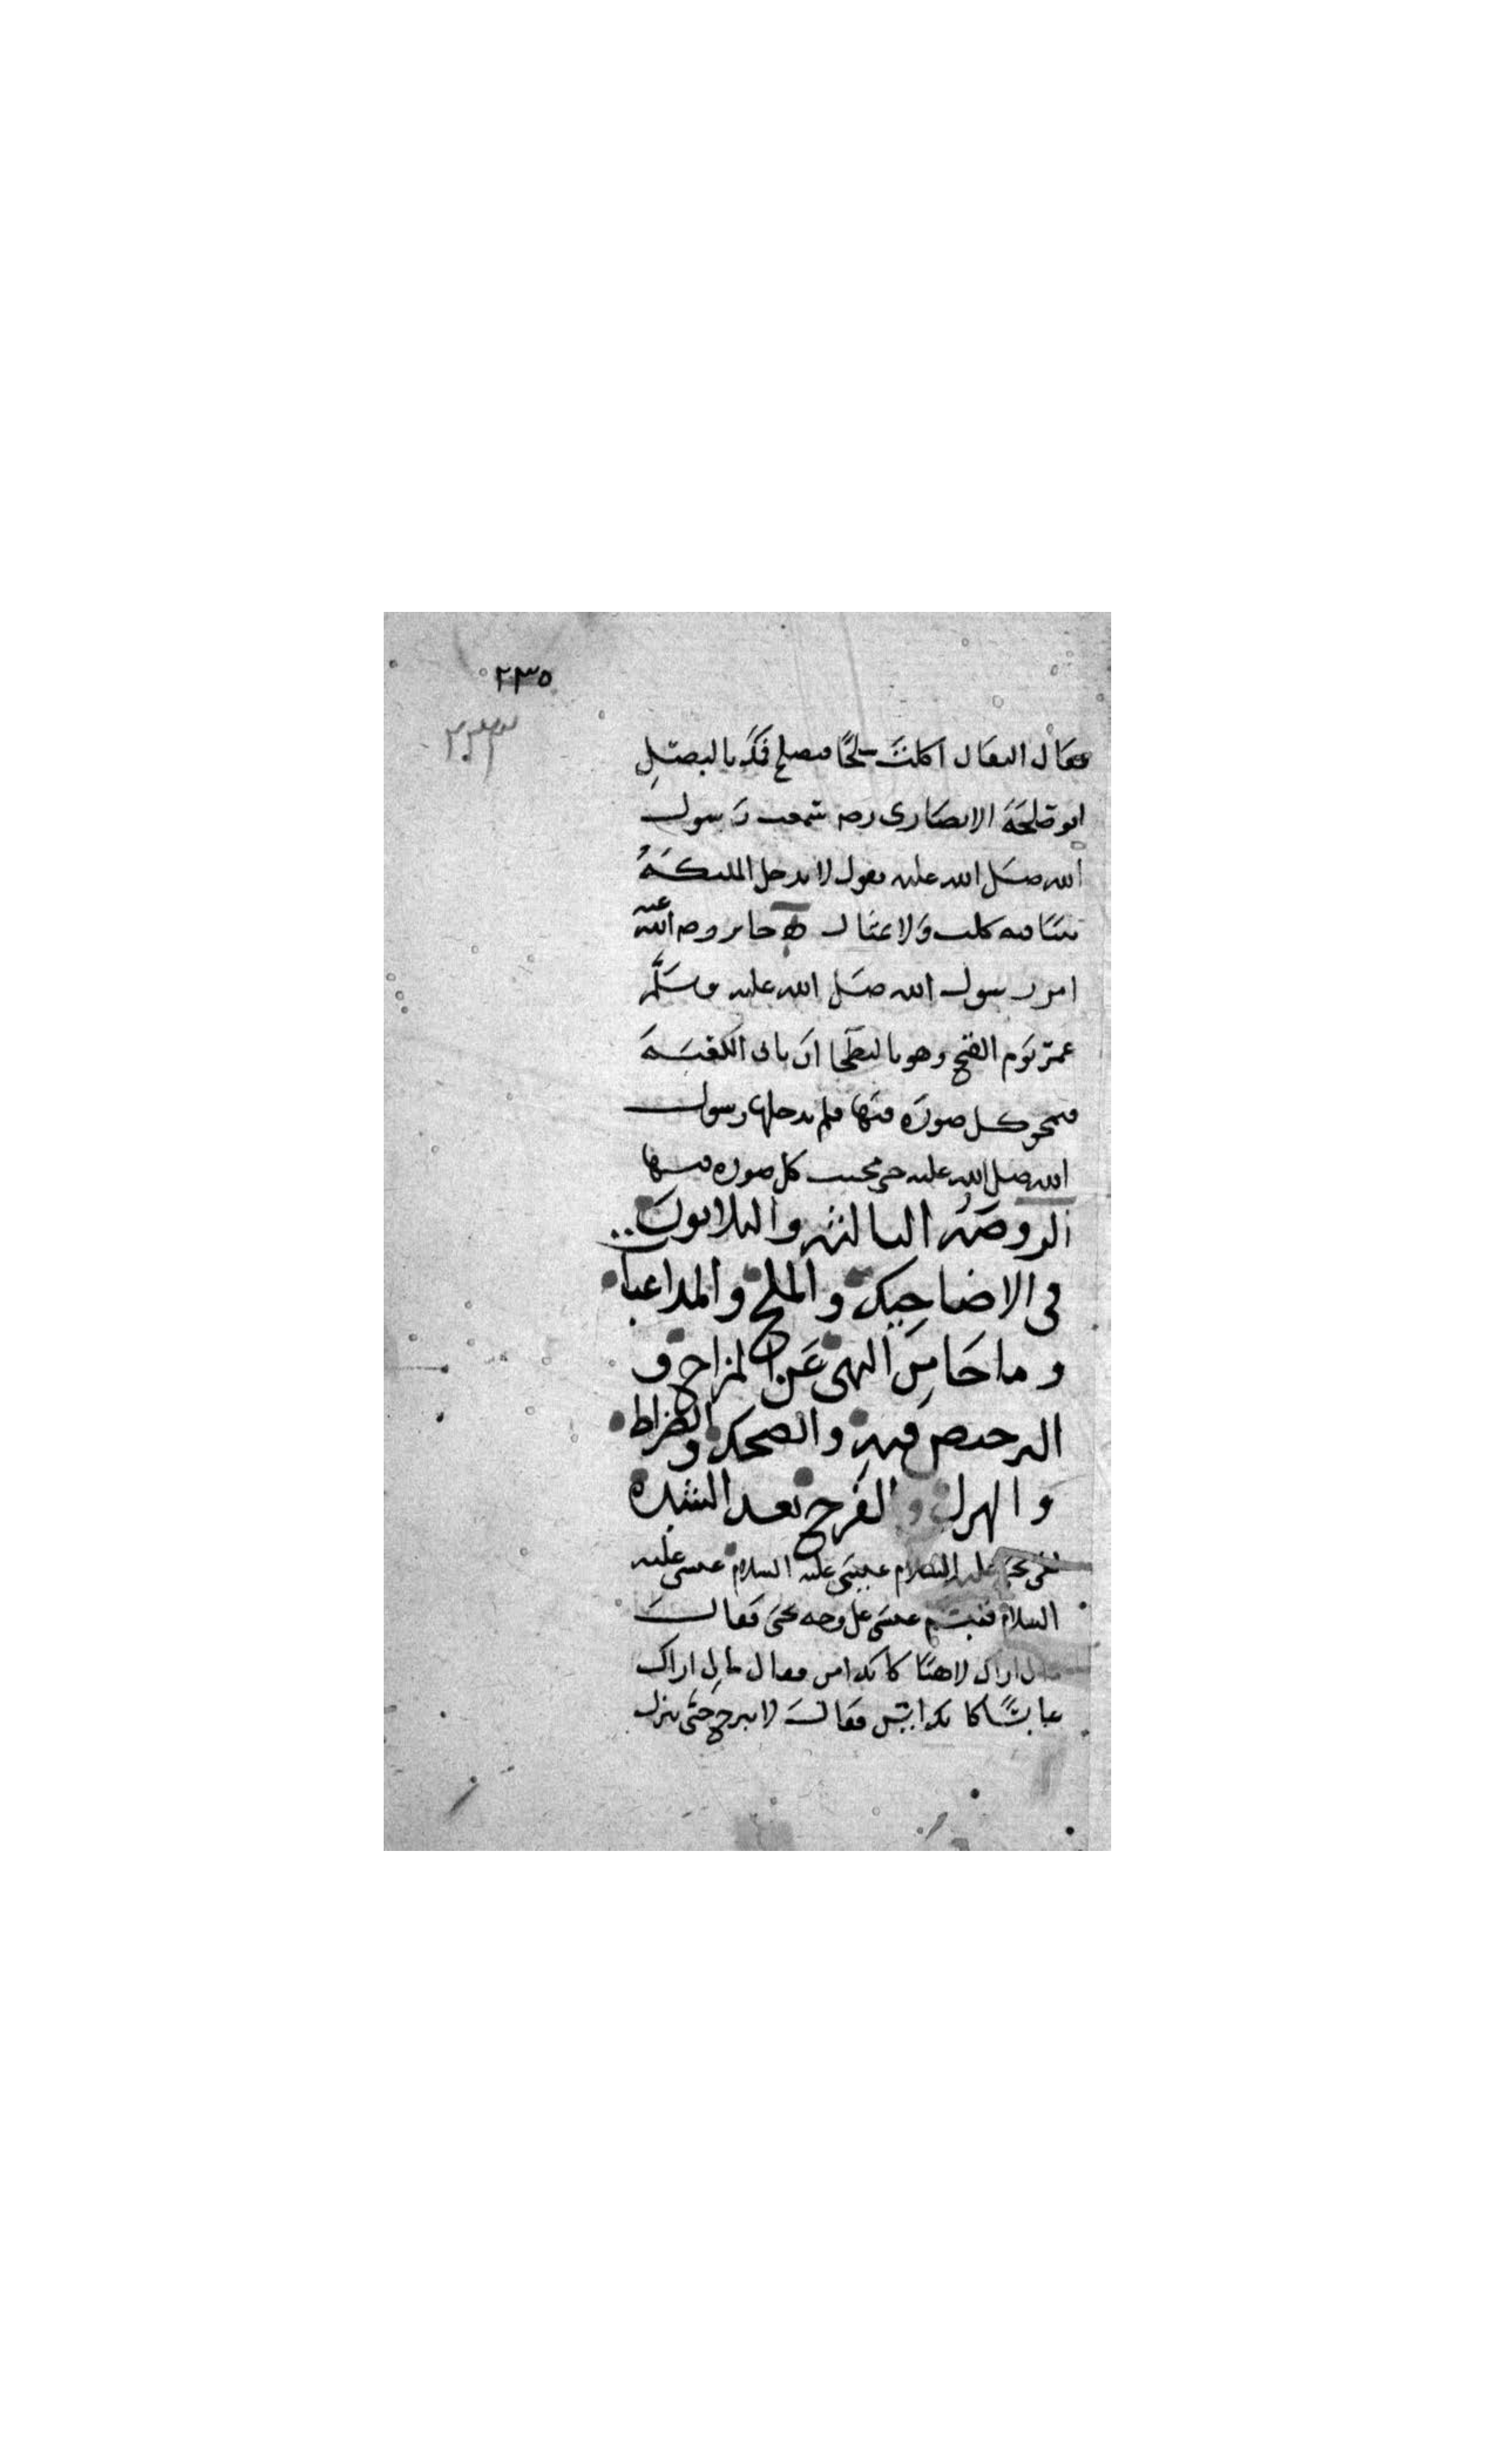 ٢٣٥
٢٣٣
فقال البقال اكلتَ لحمًا فتصلح فمك بالبصلِ
ابو طلحَةَ الانصارى رضه سمعت رَسول
الله صلى الله عليه يقول لا يدخل الملئكةُ
بيتًا فيه كلب وَلا تمثال ه جابر رضى الله عنه
امر رسول الله صلى الله عليه وسَلَّم
عمرَ يَوم الفتح وهو بالبطحا ان ياتى الكعبَةَ
فيمحو كل صورَه فيها فلم يدخلها رسول
الله صلى الله عليه حتى محيت كل صوره فيها
الروضَةُ الثالثة والثلاثونَ
فى الاضاحِيك والملح والمداعبا
وما جَا مِنَ النهى عَن المزاح و
الترخيص فيه والضحك والضراط
والهزل والفرج بعد الشدة
لقى يحيى عليه السلام عيسَى عليه السلام عيسى عليه
السلام فتبسم عيسَى على وجه يحيَى فقالَ
مالى اراك لاهيًا كانك امن فقال مالِى اراك
عابسًا كانك ايس فقالَ لا نبرح حَتى ينزل